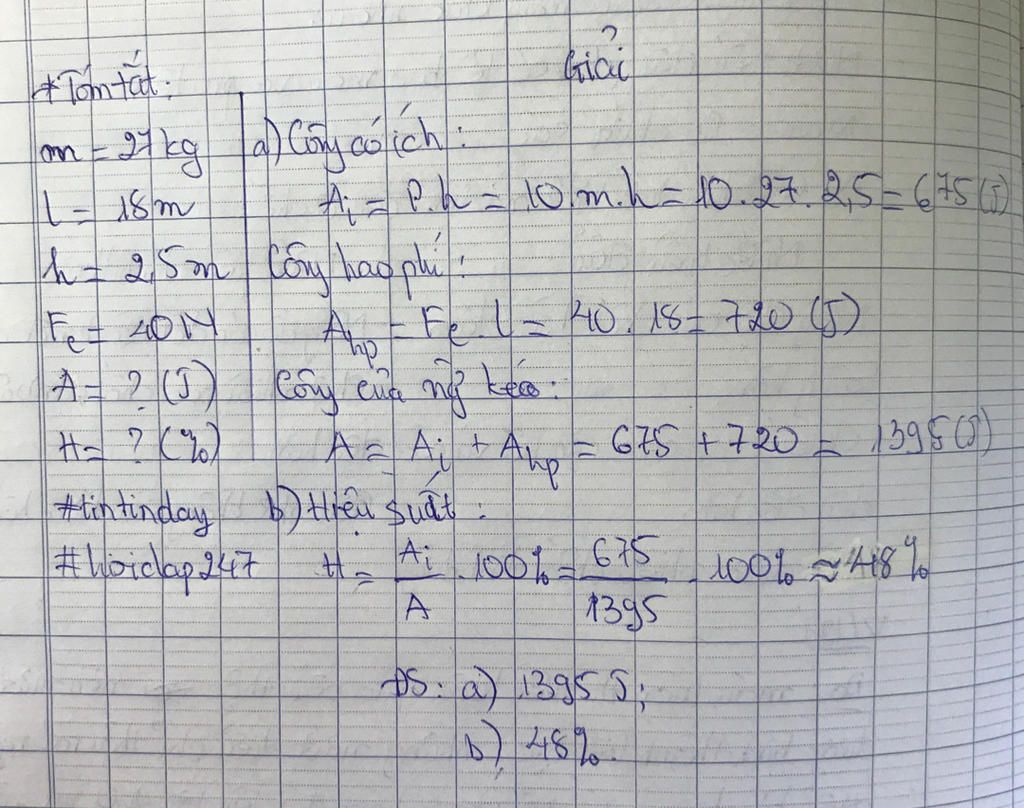 Giải
*Tóm tắt:
m = 27 kg
l = 18 m
h = 2,5 m
Fc = 40 N
A = ? (J)
H = ? (%)
#tintinday
#hoidap247
a) Công có ích:
Ai = P.h = 10.m.h = 10.27.2,5 = 675 (J)
Công hao phí:
Ahp = Fc.l = 40.18 = 720 (J)
Công của ng kéo:
A = Ai + Ahp = 675 + 720 = 1395 (J)
b) Hiệu suất:
H = Ai/A . 100% = 675/1395 . 100% ≈ 48%
ĐS: a) 1395 J;
b) 48%.